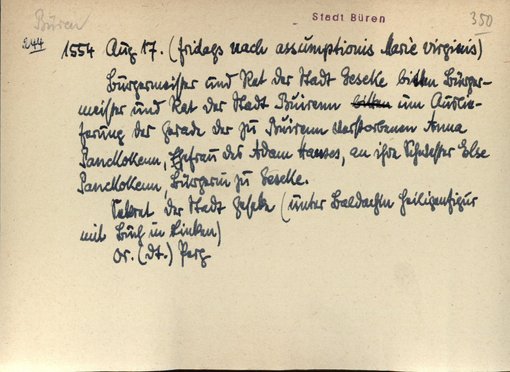 Büren
Stadt Büren
350
244
1554 Aug 17. (fridags nach assumptionis Marie virginis)
Bürgermeister und Rat der Stadt Geseke bitten Bürger-
meister und Rat der Stadt Büirenn bitten um Auslie-
ferung der Gerade der zu Büirenn verstorbenen Anna
Panckokenn, Ehefrau des Adam Hanses, an ihre Schwester Else
Panckokenn, Bürgerin zu Geseke.
Sekret der Stadt Geseke (unter Baldachin Heiligenfigur
mit Buch in Linken)
Or. (dt.) Perg